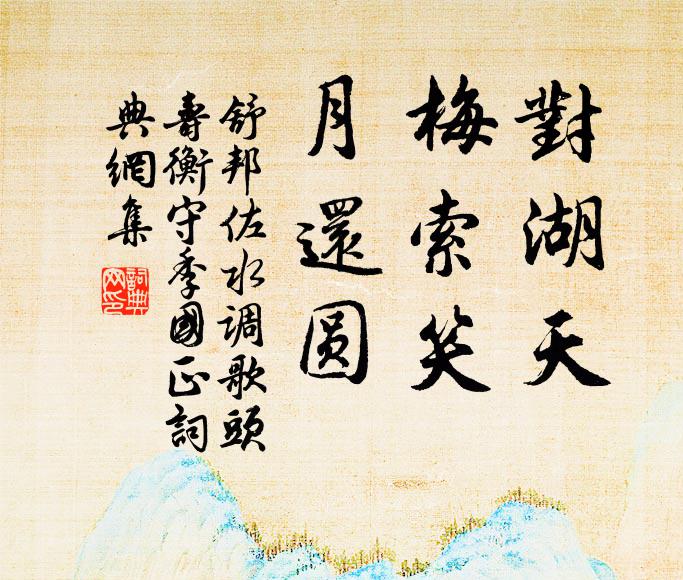 對湖天
梅索笑
月還圓
舒邦佐水调歌頭
壽衡守季國正詞
典網集
詞典网印